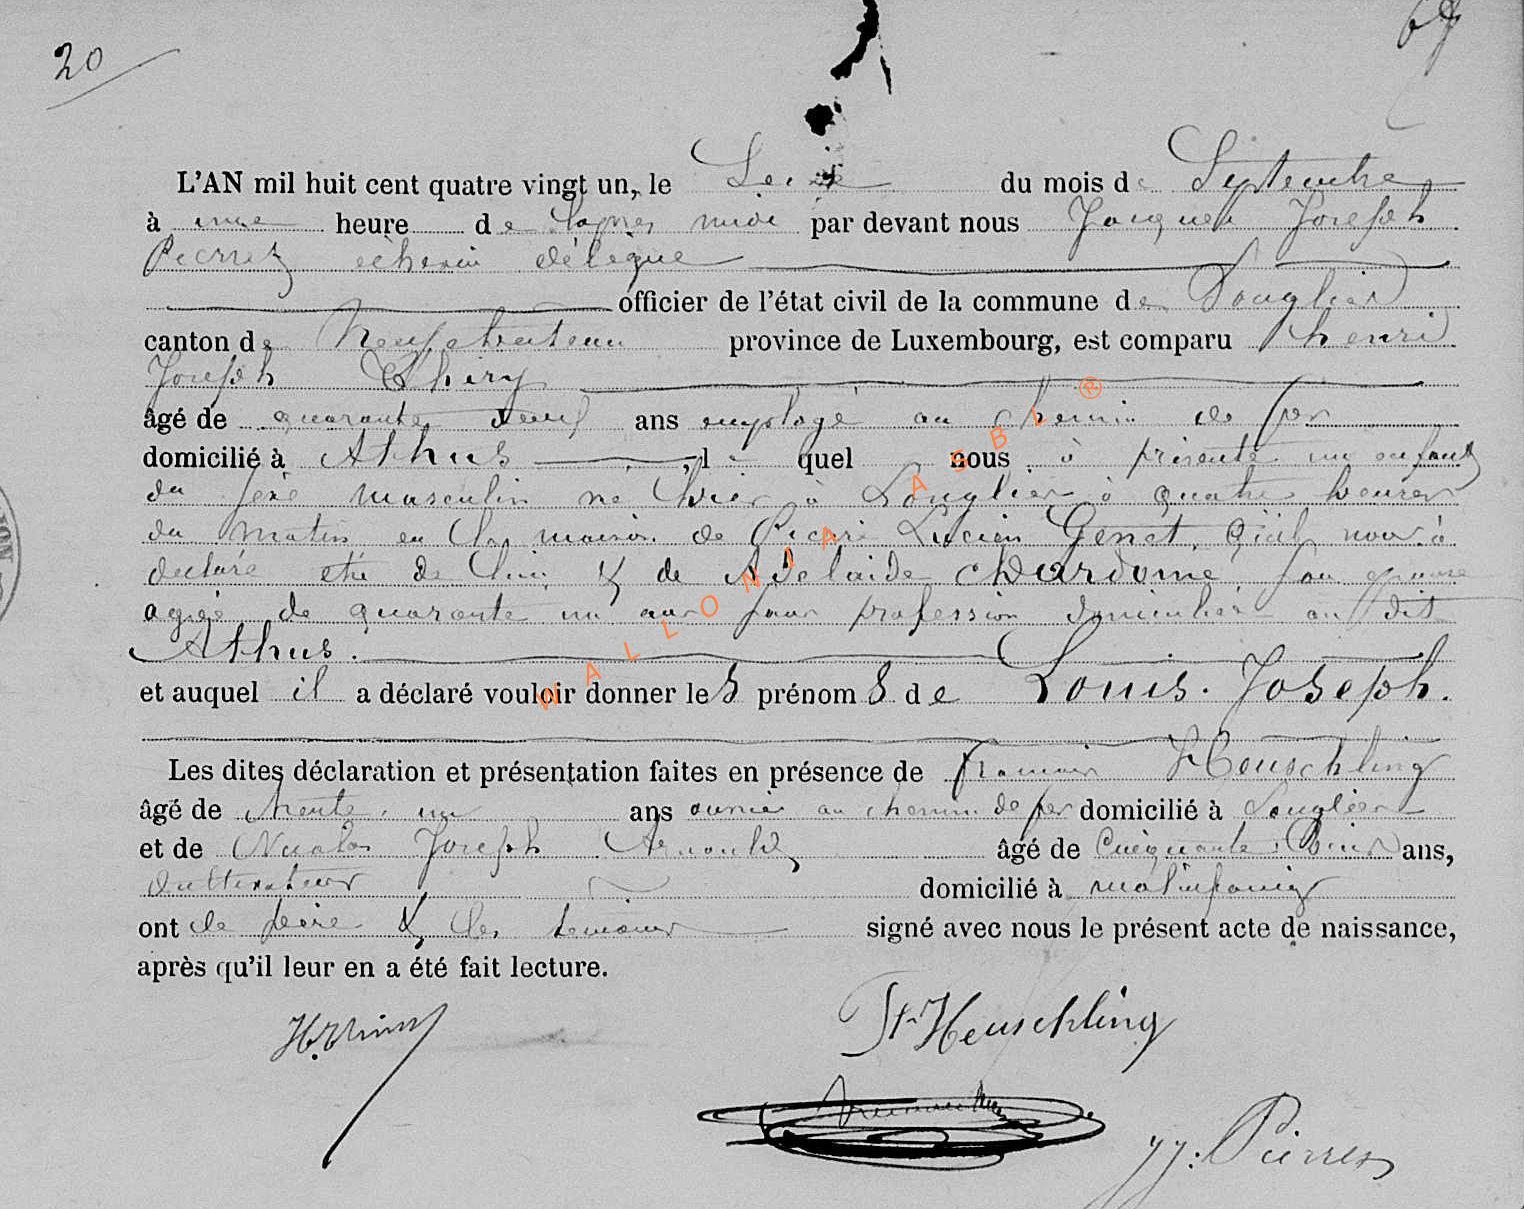 20
L'AN mil huit cent quatre vingt un, le Seize du mois de Septembre
à une heure de laprés midi par devant nous Jacques Joseph
Pierret échevin délégué
officier de l'état civil de la commune de Longlier
canton de Neufchateau province de Luxembourg, est comparu henri
Joseph Thiry
âgé de quarante neuf ans employé au chemin de fer
domicilié à Athus , l quel nous à présenté un enfant
du sexe masculin né hier à Longlier à quatre heures
du matin en la maison de Lucien Genet, qu'il nous à
declaré etre de lui & de Adelaide chardome, son epouse
agée de quarante un ans sans profession domiciliée au dit
Athus.
et auquel il a déclaré vouloir donner les prénoms de Louis. Joseph.
Les dites déclaration et présentation faites en présence de Heuschling
âgé de trente un ans ouvrier au chemin de fer domicilié à Longlier
et de Nicolas Joseph Arnould âgé de Cinquante ans,
Cultivateur domicilié à molinfaing
ont le pére & les temoins signé avec nous le présent acte de naissance,
après qu'il leur en a été fait lecture.
Heuschling
JJ: Pierret
WALLONIA ASBL ®